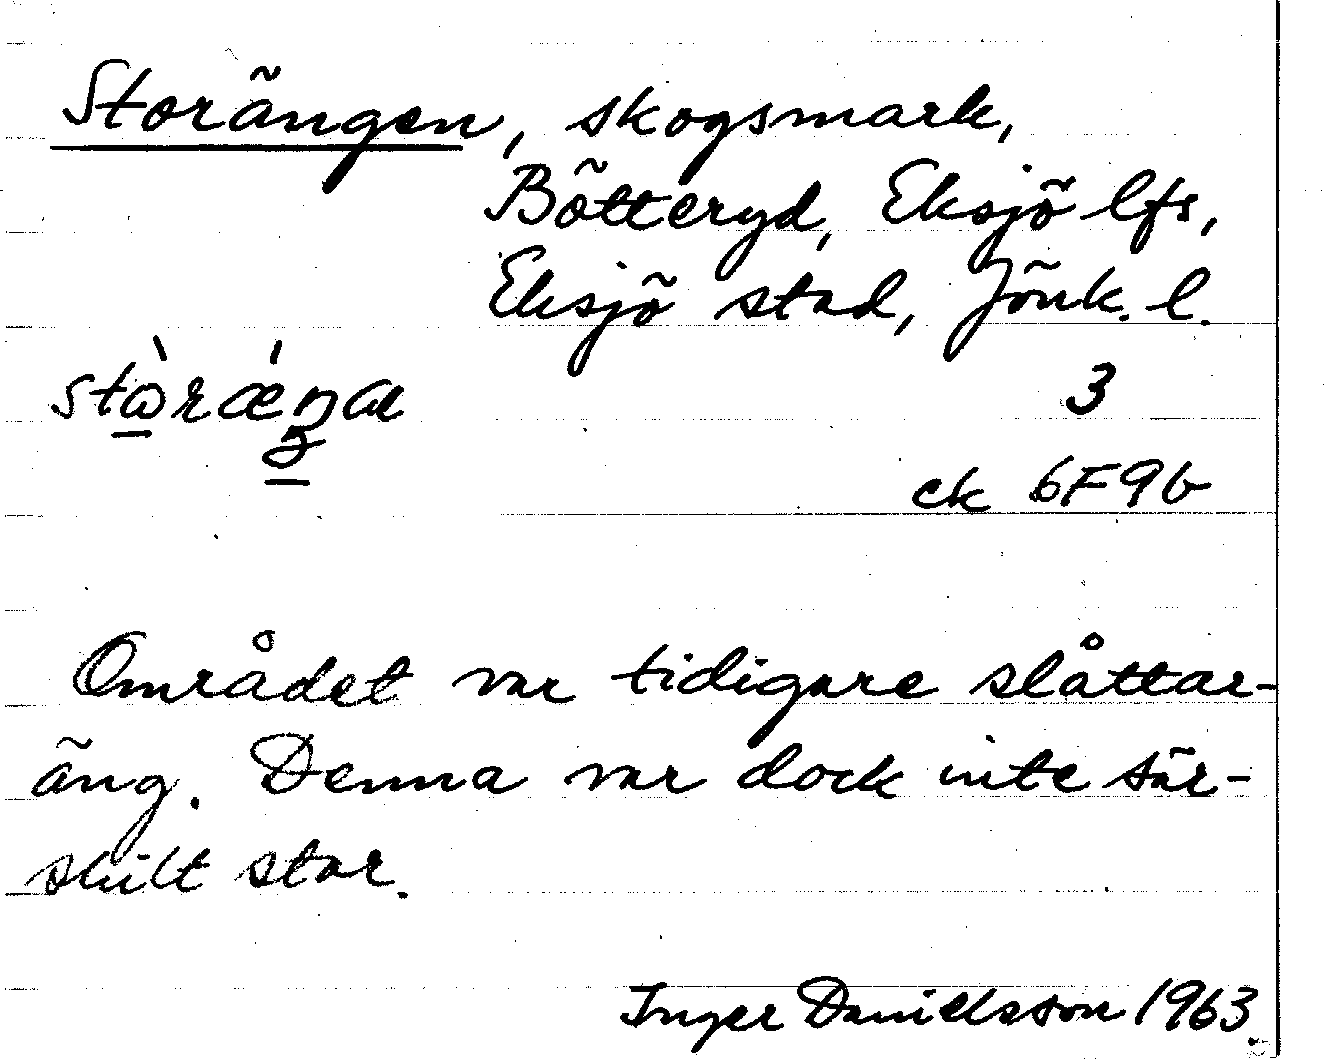 Storängen, skogsmark,
Bötteryd, Eksjö lfs,
Eksjö stad, Jönk. l.
3
ek 6F9b
Området var tidigare slåttar-
äng. Denna var dock inte sär-
skilt stor.
Inger Danielsson 1963